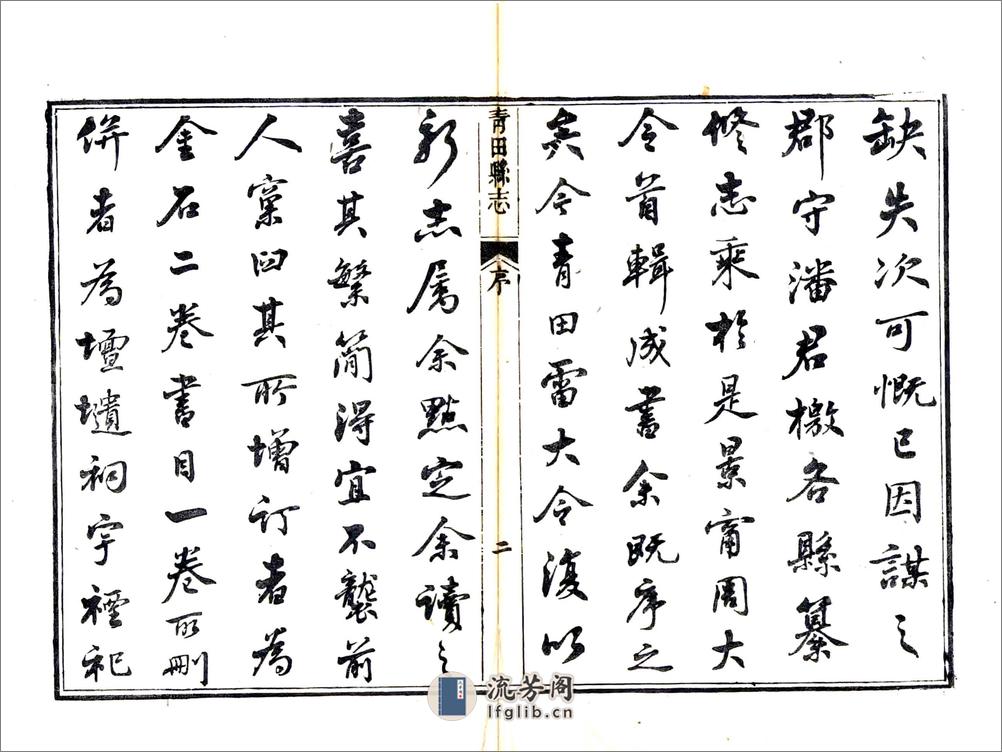 缺失次可慨已因謀之
郡守潘君檄各縣纂
修志乘於是景甯周大
令首輯成書余既序之
矣今青田雷大令復以
青田縣志
序
二
新志属余點定余讀之
喜其繁簡得宜不襲前
人窠臼其所增訂者為
金石二卷書目一卷所刪
併者為壇壝祠宇禋祀
流芳阁
lfglib.cn